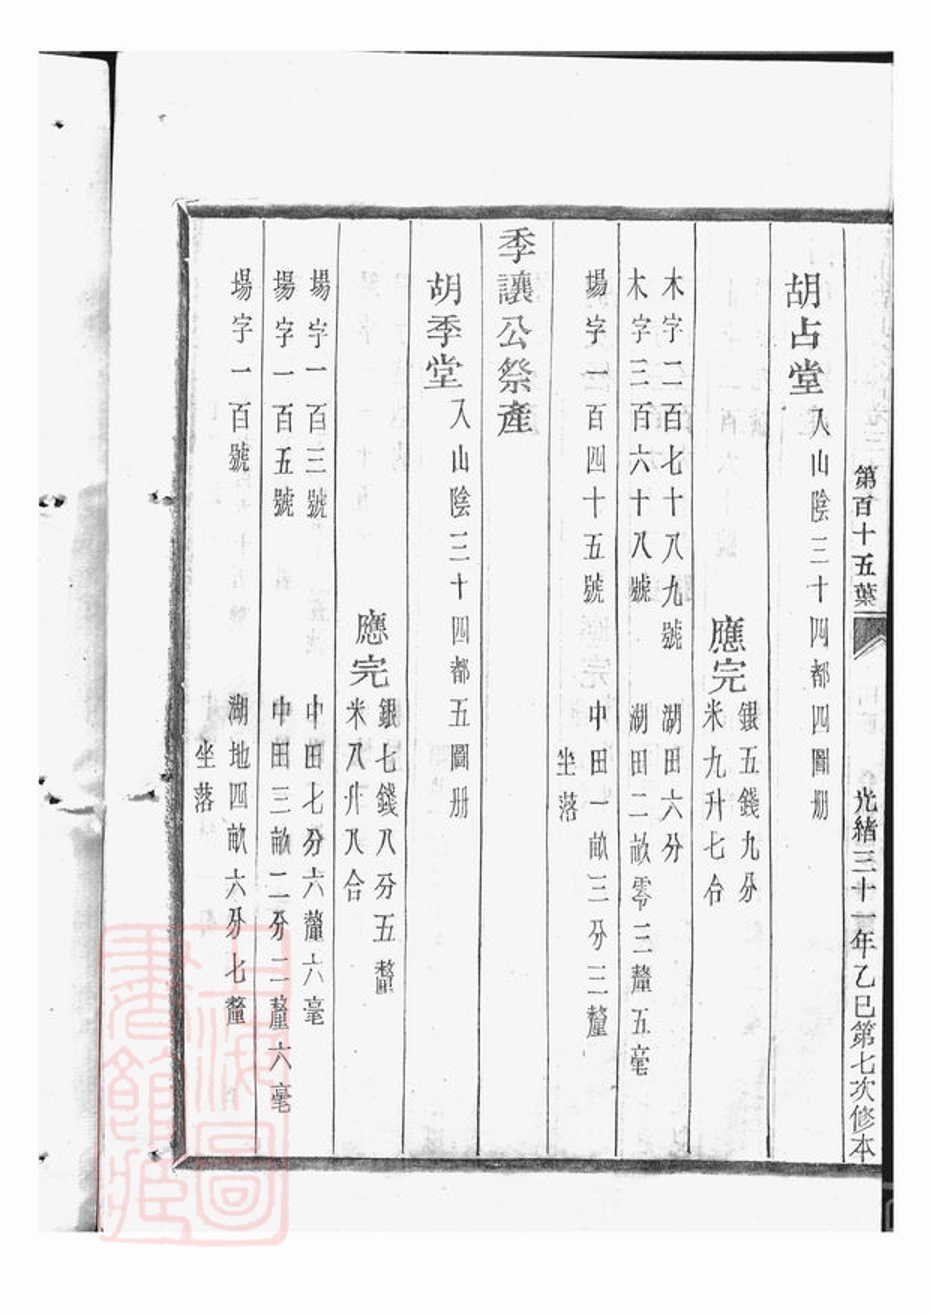 第百十五葉 光緒三十一年乙巳第七次修本
胡占堂入山陰三十四都四圖册
應完銀五錢九分
米九升七合
木字二百七十八九號 湖田六分
木字三百六十八號 湖田二畝零三釐五毫
場字一百四十五號 中田一畝三分三釐
坐落
季讓公祭產
胡季堂入山陰三十四都五圖册
應完銀七錢八分五釐
米八升八合
場字一百三號 中田七分六釐六毫
場字一百五號 中田三畝二分二釐六毫
場字一百號 湖地四畝六分七釐
坐落
上海圖書館藏